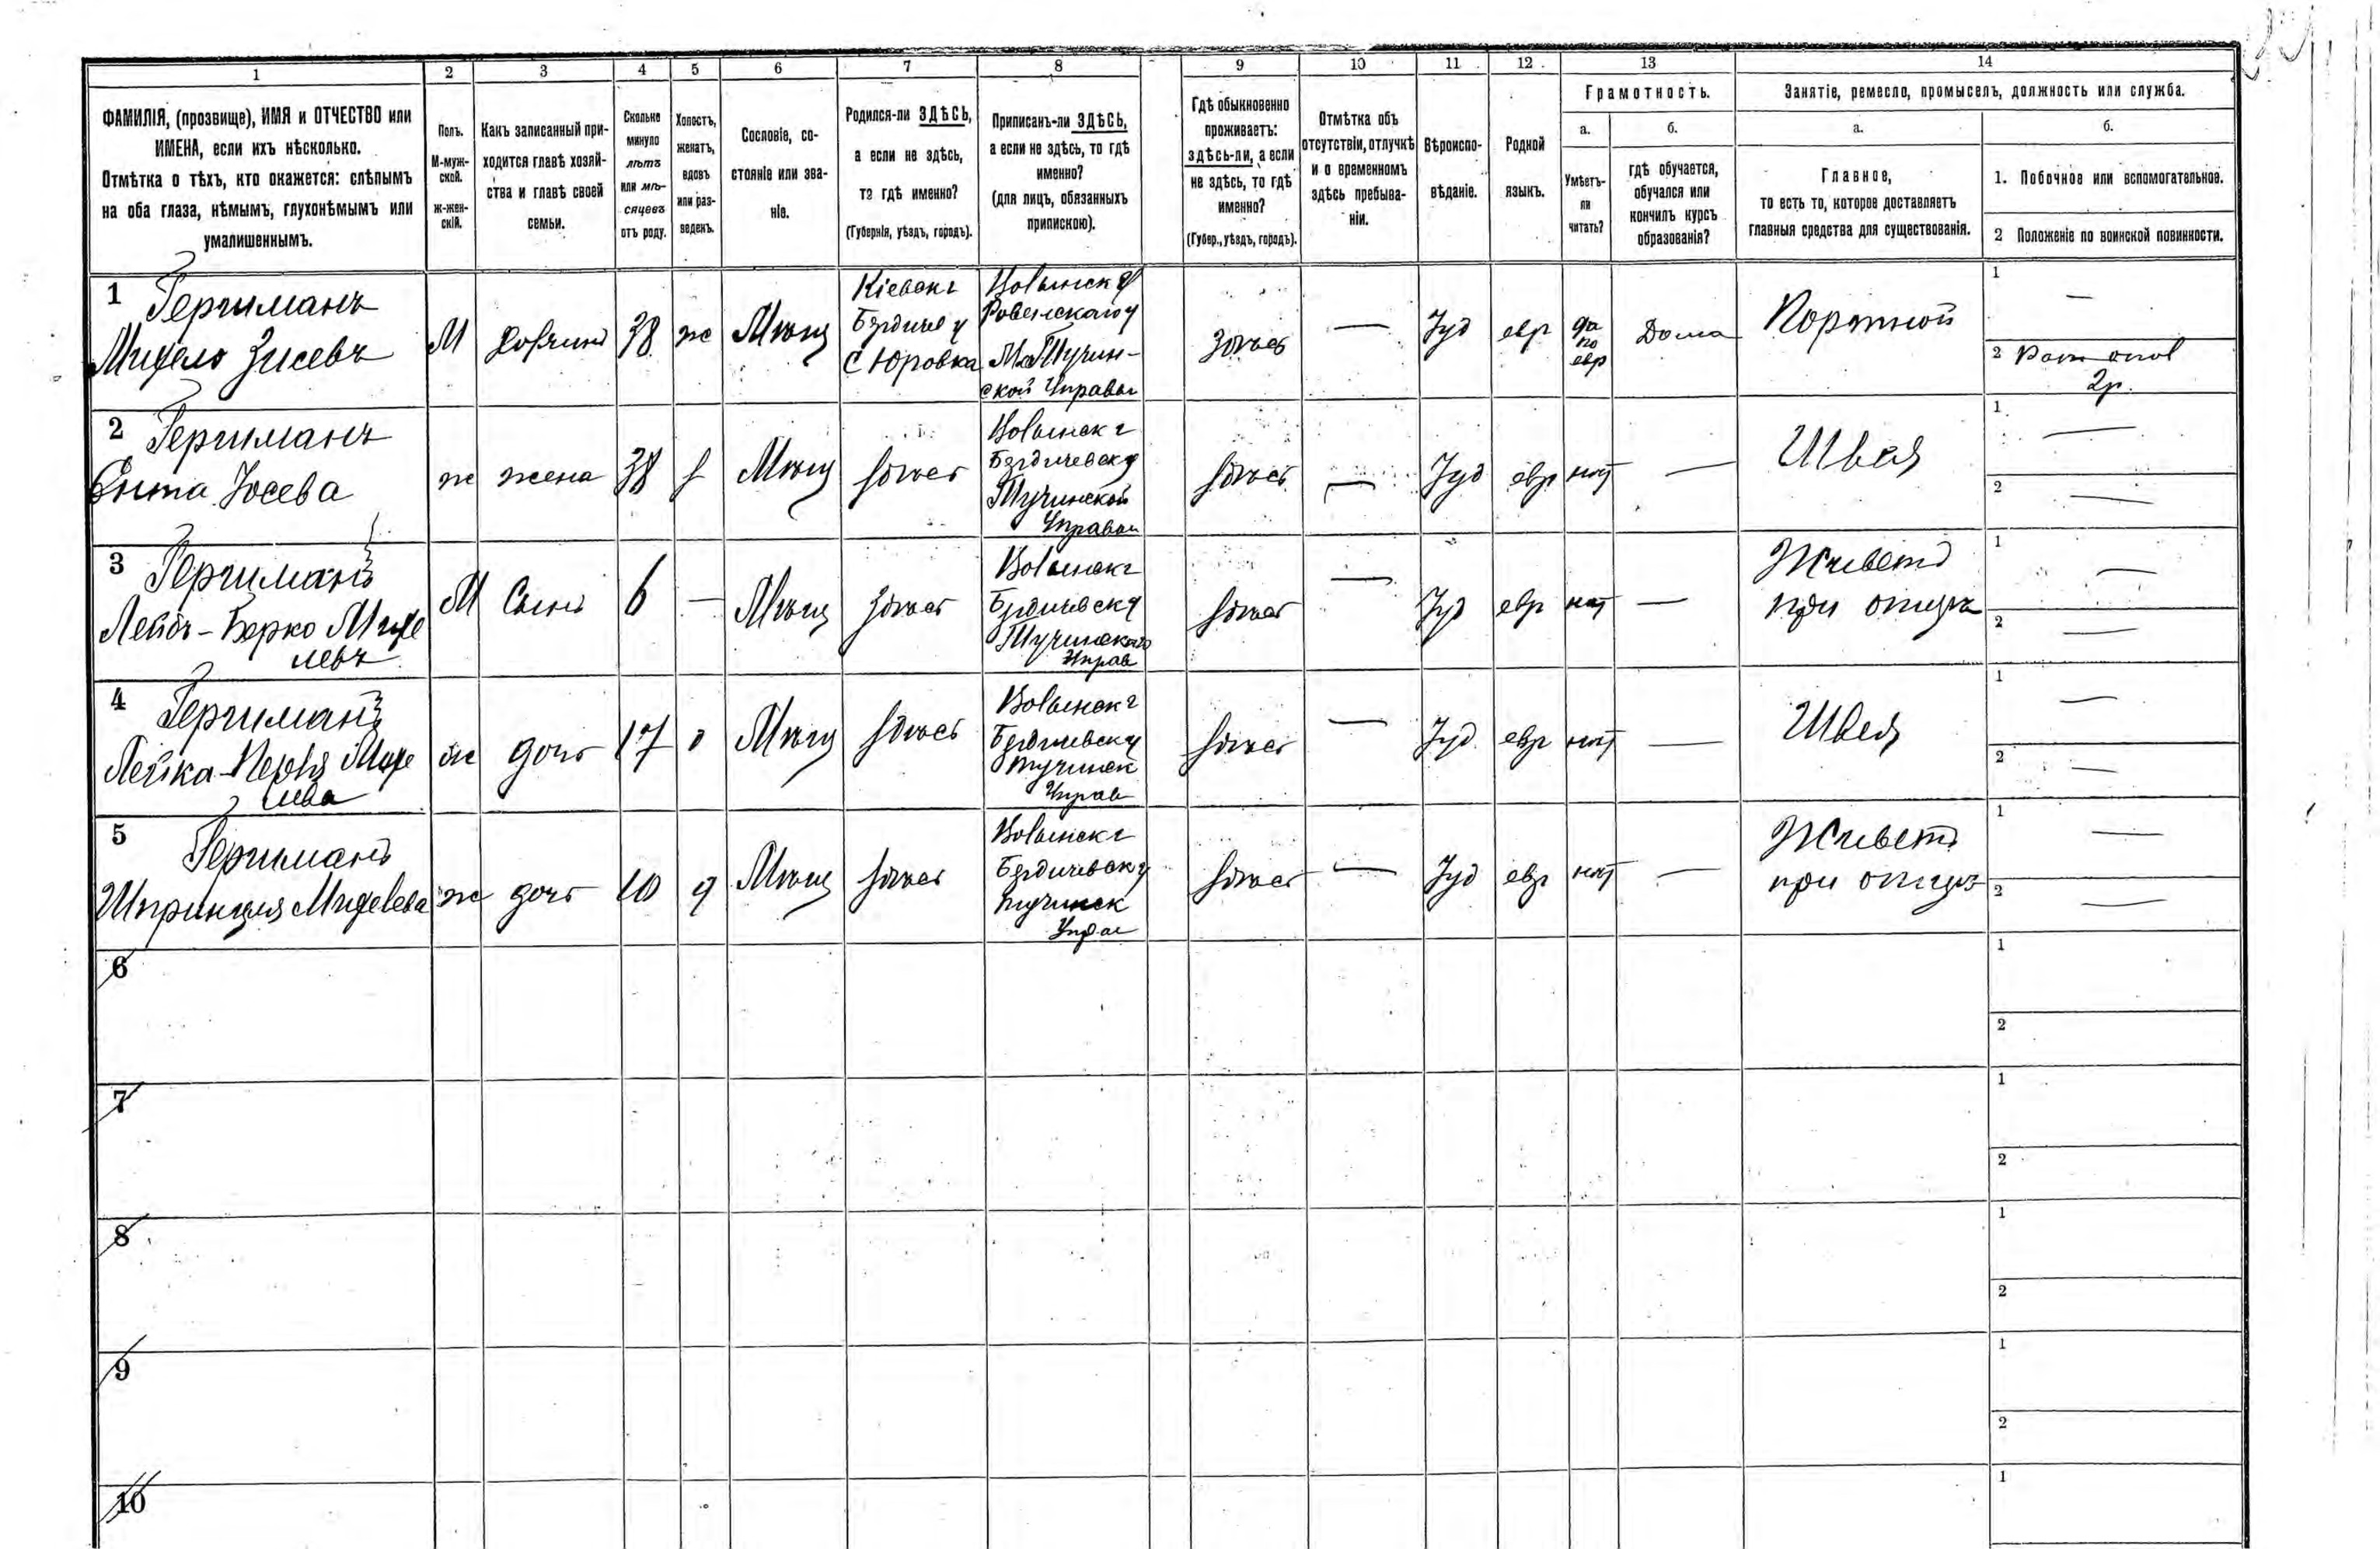 1 2 3 4 5 6 7 8 9 10 11 12 13 14
ФАМИЛІЯ, (прозвище), ИМЯ и ОТЧЕСТВО или
ИМЕНА, если ихъ нѣсколько.
Отмѣтка о тѣхъ, кто окажется: слѣпымъ
на оба глаза, нѣмымъ, глухонѣмымъ или
умалишеннымъ.
Полъ.
М-муж-
ской.
ж-жен-
скій.
Какъ записанный при-
ходится главѣ хозяй-
ства и главѣ своей
семьи.
Сколько
минуло
лѣтъ
или мѣ-
сяцевъ
отъ роду.
Холостъ,
женатъ,
вдовъ
или раз-
веденъ.
Сословіе, со-
стояніе или зва-
ніе.
Родился-ли ЗДѢСЬ,
а если не здѣсь,
то гдѣ именно?
(Губернія, уѣздъ, городъ).
Приписанъ-ли ЗДѢСЬ,
а если не здѣсь, то гдѣ
именно?
(для лицъ, обязанныхъ
припискою).
Гдѣ обыкновенно
проживаетъ:
здѣсь-ли, а если
не здѣсь, то гдѣ
именно?
(Губер., уѣздъ, городъ).
Отмѣтка объ
отсутствіи, отлучкѣ
и о временномъ
здѣсь пребыва-
ніи.
Вѣроиспо-
вѣданіе.
Родной
языкъ.
Грамотность.
а.
Умѣетъ-
ли
читать?
б.
гдѣ обучается,
обучался или
кончилъ курсъ
образованія?
Занятіе, ремесло, промыселъ, должность или служба.
а.
Главное,
то есть то, которое доставляетъ
главныя средства для существованія.
б.
1. Побочное или вспомогательное.
2 Положеніе по воинской повинности.
1 Герчманъ
Михель Зисевъ
М
38
ж
Мѣщ
Кіевск г
Бердичев у
с Юровка
Волынск г
Ровенскаго у
М. Тучин-
ской Управы
Здѣсь
—
Іуд
евр
да
по
евр
Дома
Портной
1
—
2
2р.
2 Герчманъ
Ента Іосева
ж
жена
38
Мѣщ
здѣсь
Волынск г
Бердичевск у
Тучинской
Управы
здѣсь
—
Іуд
евр
нѣт
—
Швея
1
—
2
—
3 Герчманъ
Лейбъ-Берко Михе
левъ
М
Сынъ
6
—
Мѣщ
здѣсь
Волынск г
Бердичевск у
Управ
здѣсь
—
Іуд
евр
нѣт
—
Живетъ
при отцѣ
1
—
2
—
4 Герчманъ
Лейка- Михе
лева
ж
дочь
17
Мѣщ
здѣсь
Волынск г
Бердичевск у
Тучинск
Управ
здѣсь
—
Іуд
евр
нѣт
—
Швея
1
—
2
—
5 Герчманъ
Шпринцля Михелева
ж
дочь
10
д
Мѣщ
здѣсь
Волынск г
Бердичевск у
Тучинск
Управ
здѣсь
—
Іуд
евр
нѣт
—
Живетъ
при отцѣ
1
—
2
—
6
1
2
7
1
2
8
1
2
9
1
2
10
1